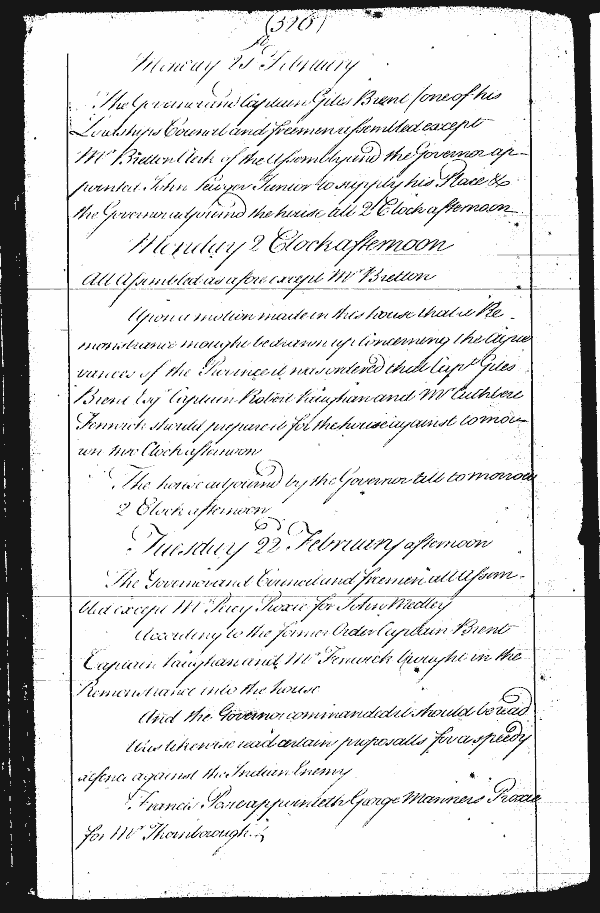 (326)
Monday 21st February
The Governor and Captain Giles Brent (one of his
Lordships Council and freemen assembled except
Mr Bretton Clerk of the Assembly and the Governor ap-
pointed John Junior to supply his Place &
the Governor adjourned the house till 2 Clock afternoon
Monday 2 Clock afternoon
All Assembled as afore except Mr Bretton
Upon a motion made in this house that a Re-
monstrance mought be drawn up concerning the Agree
vances of the Province it was ordered that Capt Giles
Brent Esqr Captain Robert Vaughan and Mr Cuthbert
Fenwick should prepare it for the house against tomor-
ow two Clock afternoon
The house adjourned by the Governor till tomorrow
2 Clock afternoon
Tuesday 22 February afternoon
The Governor and Council and freemen all Assem-
bled except Mr Percy Proxie for John Medley
According to the former Order Captain Brent
Captain Vaughan and Mr Fenwick brought in the
Remonstrance into the house
And the Governor commanded it should be read
Was likewise read certain proposalls for a speedy
defence against the Indian Enemy
Francis Pope appointeth George Manners Proxie
for Mr Thornborough